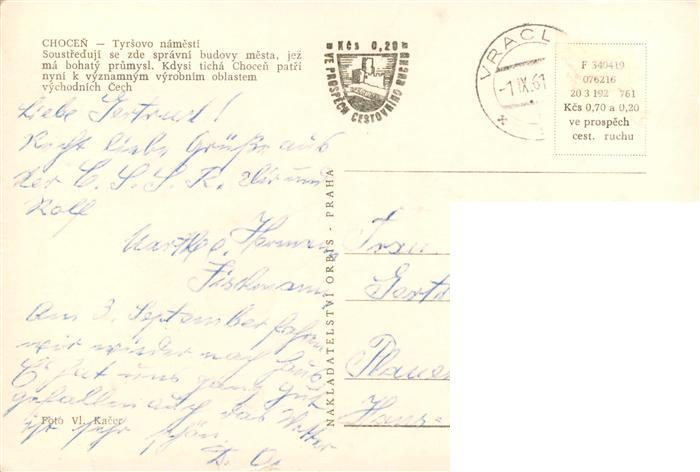 CHOCEŇ — Tyršovo náměstí
Soustřeďují se zde správní budovy města, jež
má bohatý průmysl. Kdysi tichá Choceň patří
nyní k významným výrobním oblastem
východních Čech
Kčs 0,20
VE PROSPĚCH CESTOVNÍHO RUCHU
VRACL
-7.IX.61
F 340419
076216
20 3 192 761
Kčs 0,70 a 0,20
ve prospěch
cest. ruchu
Liebe Gertrud!
Recht liebe Grüße aus
der C.S.S.R. Dir und
Rolf
Herman
Fischmann
Am 3. September fahren
wir wieder nach Haus
Es hat uns ganz gut
gefallen auch das Wetter
ist sehr schön.
D. O.
NAKLADATELSTVÍ ORBIS - PRAHA
Frau
Gertr
Plauen
Hans-
Foto Vl. Kačer